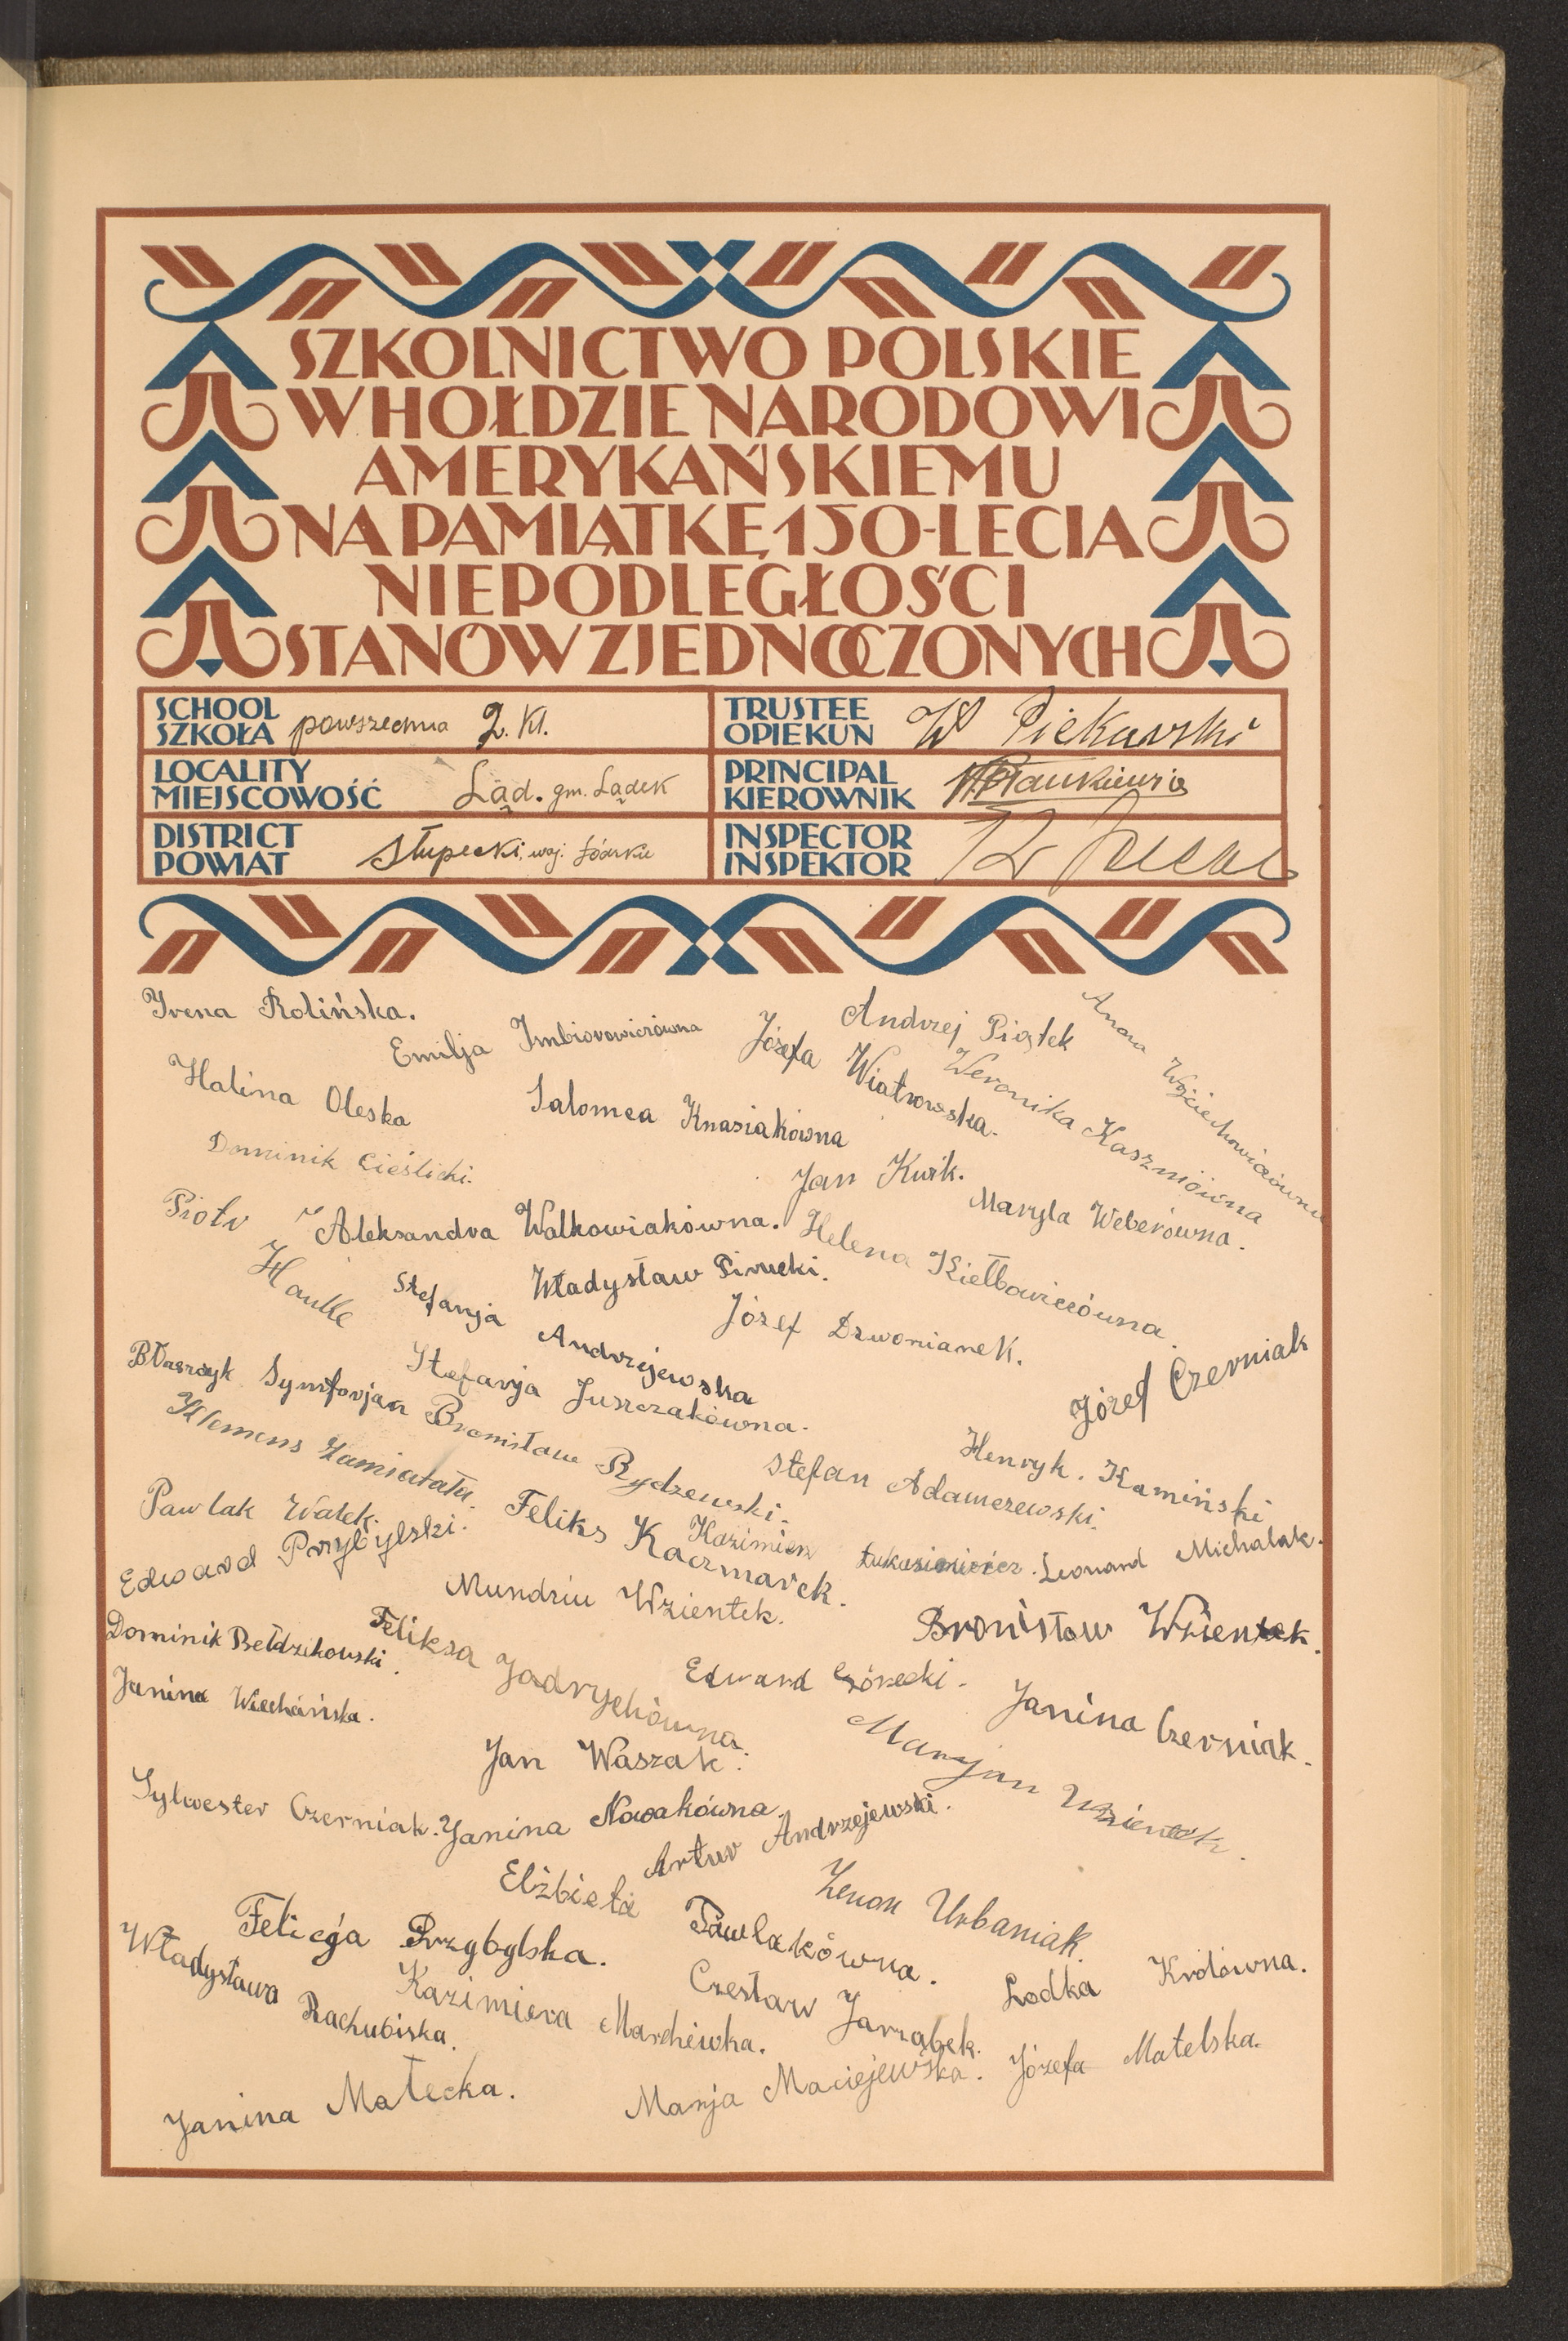 SZKOLNICTWO POLSKIE
W HOŁDZIE NARODOWI
AMERYKAŃSKIEMU
NA PAMIĄTKĘ 150-LECIA
NIEPODLEGŁOŚCI
STANÓW ZJEDNOCZONYCH
SCHOOL
SZKOŁA powszechna 2. kl.
TRUSTEE
OPIEKUN W Piekarski
LOCALITY
MIEJSCOWOŚĆ Ląd. gm. Lądek
PRINCIPAL
KIEROWNIK
DISTRICT
POWIAT Słupecki, woj. Łódzkie
INSPECTOR
INSPEKTOR
Irena Rolińska.
Andrzej Piątek
Anna Wojciechowiczówna
Emilja Imbiorowiczówna
Józefa Wiatrowska.
Weronika Kaszniówna
Halina Oleska
Salomea Knasiakówna
Dominik Cieślicki.
Jan Kwik.
Maryla Weberówna.
Piotr Haulle
Aleksandra Walkowiakówna.
Helena Kiełbowiczówna.
Władysław Pirucki.
Stefanja Andrzejewska
Józef Dzwonianek.
Józef Czerniak
Stefanja Juszczakówna.
Błaszczyk Symforjan
Bronisław Rydzewski.
Henryk. Kamiński
Stefan Adamczewski.
Klemens Zamiatała.
Pawlak Walek.
Feliks Kaczmarek.
Kazimierz Łukasiewicz.
Leonard Michalak.
Edward Przybylski.
Mundziu Wzientek.
Bronisław Wzientek.
Dominik Bełdzikowski.
Feliksa Jadrychówna.
Edward Górecki.
Janina Czerniak.
Janina Wiechańska.
Jan Waszak.
Maryjan Wzientek.
Sylwester Czerniak.
Janina Nowakówna
Artur Andrzejewski.
Elżbieta Pawlakówna.
Zenon Urbaniak.
Felicja Przybylska.
Władysława Rachubiska.
Kazimiera Marchewka.
Czesław Jarząbek.
Lodka Królówna.
Józefa Matelska.
Marja Maciejewska.
Janina Małecka.